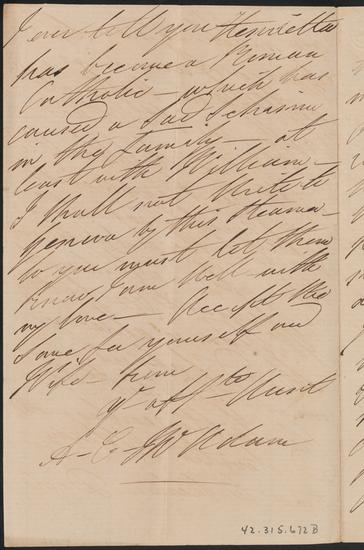 I ever tell you Henrietta
has become a Roman
Catholic – which has
caused a Sad Schism
in the Family – at
least with William –
I shall not write to
Geneva by this Steamer –
So you must let them
know I am well – with
my love – Accept the
Same for yourself and
Wife – from
yr. afft. Aunt
A – C – McAdam
42.315.672B